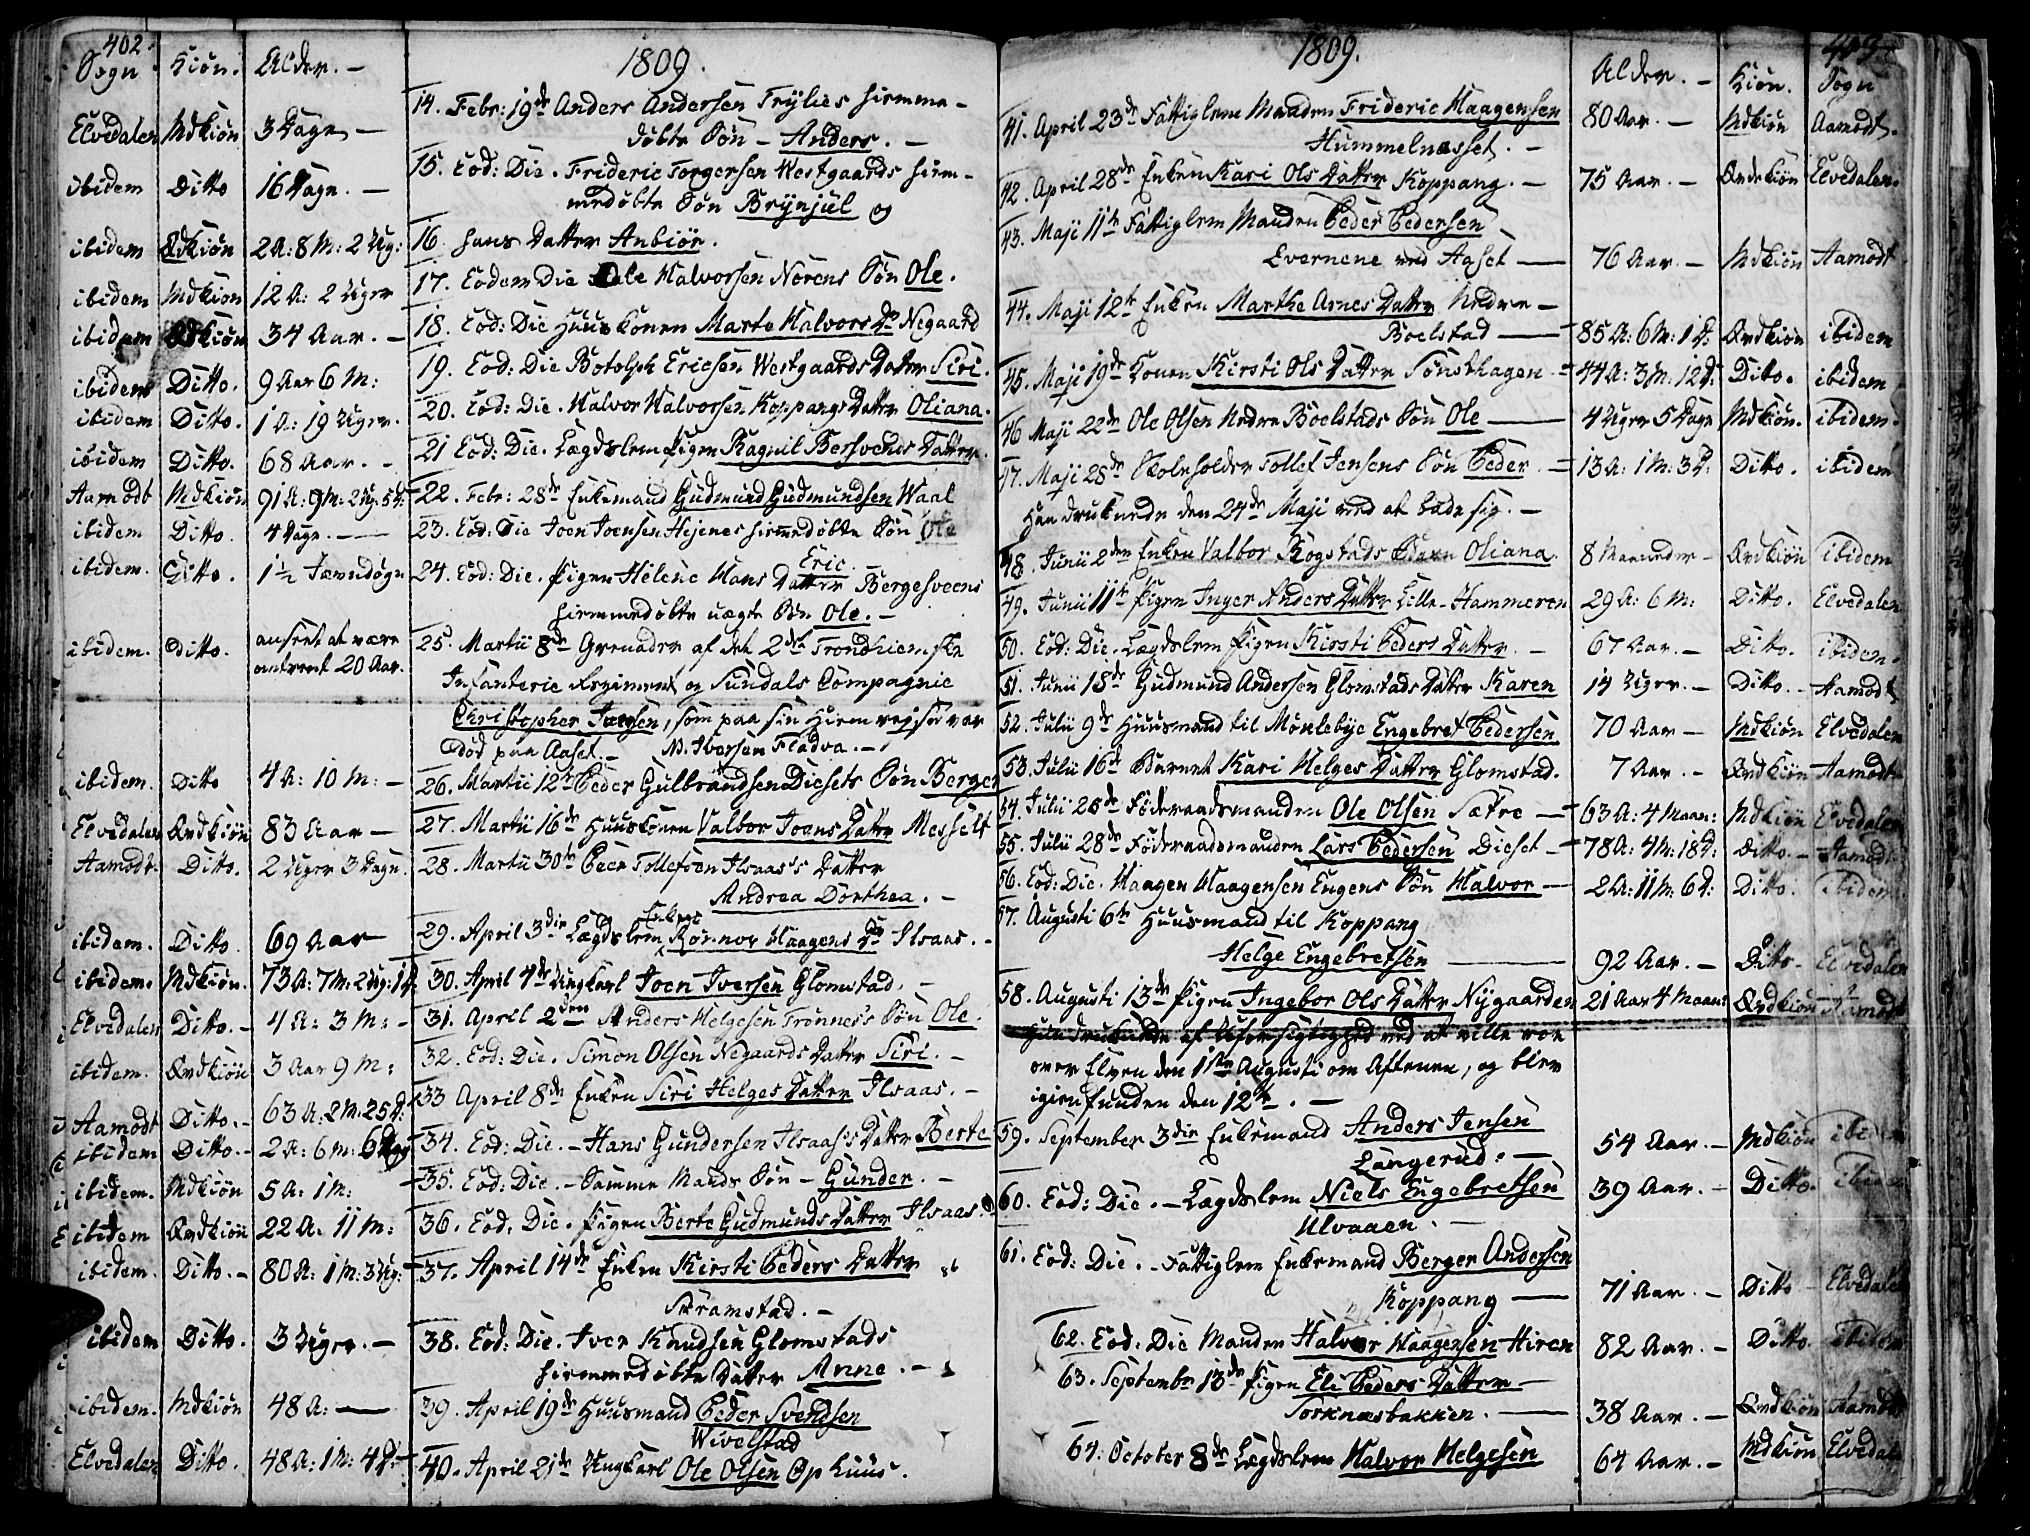 402
Sogn Kiön. Alder. - 1809.
Elvedalen Mdkiön 3 Dage - 14. Febr: 19de Anders Andersen Tryties hiemme-
döbte Sön - Anders. -
ibidem Ditto 16 Dage. - 15. Eod: Die. Frideric Torgersen Westgaards hiem-
medöbte Sön Brynjul og
ibidem Qvdkiön 2 A: 8 M: 2 Ug: 16 hans Datter Anbiör.
ibidem Mdkiön 12 A: 2 Uger 17. Eodem Die Ole Halvorsen Norens Sön Ole.
ibidem Qvdkiön 34 Aar. - 18. Eod: Die Huuskonen Marte Halvors Dr Negaard
ibidem Ditto. 9 Aar 6 M: 19. Eod: Die Botolph Ericsen Westgaards Datter Siri.
ibidem Ditto. 1 A: 19 Uger. 20. Eod: Die. Halvor Halvorsen Koppangs Datter Oliana.
ibidem Ditto. 68 Aar. - 21 Eod: Die. Lægdslem Pigen Ragnil Bersvends Datter.
Aamodt Mdkiön 91 A: 9 M: 2 Ug: 5 d: 22. Febr: 28de Enkemand Gudmund Gudmundsen Waal
ibidem Ditto. 4 Dage. - 23. Eod: Die Joen Joensen Hejenes hiemmedöbte Sön Ole
Eric.
ibidem. Ditto. 1½ Jævndøgn 24. Eod: Die. Pigen Helene Hans Datter Bergesveens
hiemmedöbte uægte Sön Ole. -
ibidem. Ditto. anseet at være omtrent 20 Aar. 25. Martii 8de Grenader af det 2det Trondhiemske
Infanterie Regiment og Sundals Compagnie
Christopher Iversen, som paa sin Hiemrejse var
död paa Aaset. - N. Iversen Fladva. -
ibidem. Ditto 4 A: 10 M: - 26. Martii 12te Peder Gulbrandsen Diesets Sön Berger
Elvedalen Qvdkiön 83 Aar - 27. Martii 16de Huuskonen Valbor Joens Datter Messelt
Aamodt. Ditto. 2 Uger 3 Dage. 28. Martii 30te Peer Tollefsen Ilsaas's Datter
Andrea Dorthea. -
ibidem. Ditto. 69 Aar 29. April 3die Lægdslem Enken Rönnov Haagens Dr Ilsaas. -
ibidem. Mdkiön. 73 A: 7 M: 2 Ug: 1 d. 30. April 4de Ungkarl Joen Iversen Glomstad. -
Elvedalen Ditto. - 4 A: 3 M: - 31. April 2den Anders Helgesen Trönnes's Sön Ole.
ibidem. Qvdkiön 3 Aar 9 M: 32. Eod: Die. Simon Olsen Negaards Datter Siri. -
Aamodt Ditto. - 63 A: 2 M. 25 d: 33 April 8de Enken Siri Helges Datter Ilsaas. -
ibidem Ditto. - 2 A: 6 M: 34. Eod: Die. - Hans Gundersen Ilsaas's Datter Berte
ibidem. Mdkiön 5 A: 1 M: 35. Eod: Die. - Samme Mands Sön - Gunder. -
ibidem Qvdkiön 22 A. 11 M: 36. Eod. Die. Pigen Berte Gudmunds Datter Ilsaas.
ibidem. Ditto. - 80 A: 1 M: 3 Ug: 37. April 14de Enken Kirsti Peders Datter
Skramstad. -
ibidem Ditto. 3 Uger. - 38. Eod: Die. Iver Knudsen Glomstads
hiemmedöbte Datter Anne. -
ibidem. Mdkiön 48 A: - 39. April 19de Huusmand Peder Svendsen
Wivelstad
Elvedalen Ditto. 48 A: 1 M: 4 D: 40. April 21de Ungkarl Ole Olsen Ophuus.
403
1809. Alder. - Kiön. Sogn
41. April 23de Fattiglem Manden Frideric Haagensen 80 Aar. - Mdkiön Aamodt.
Hummelnæsset. -
42. April 28de Enken Kari Ols Datter Koppang. - 75 Aar. - Qvdkiön Elvedalen.
43. Maji 11te Fattiglem Manden Peder Pedersen
Evernene ved Aaset - 76 Aar. - Mdkiön Aamodt
44. Maji 12te Enken Marthe Arnes Datter Nedre -
Boelstad - 85 A: 6 M: 1 D: Qvdkiön ibidem
45. Maji 19de Konen Kirsti Ols Datter Sönsthagen. - 44 A: 3 M: 12 D: Ditto. ibidem
46 Maji 22de Ole Olsen Nedre Boelstads Sön Ole - 4 Uger 5 Dage Mdkiön. ibidem.
47. Maji 28de Skoleholder Tollef Jensens Sön Peder. - 13 A: 1 M: 3 D. Ditto. ibidem
Han druknede den 24de Maji ved at bade sig. -
48. Junii 2den Enken Valbor Rogstads Oliana. 8 Maaneder - Qvdkiön ibidem
49. Junii 11te Pigen Inger Anders Datter Lille-Hammeren 29 A: 6 M: Ditto. Elvedalen
50. Eod: Die. Lægdslem Pigen Kirsti Peders Datter. - 67 Aar. - Ditto. ibidem.
51. Junii 18de Gudmund Andersen Glomstads Datter Karen 14 Uger. - Ditto. - Aamodt
52. Julii 9de Huusmand til Mönlebye Engebret Pedersen 70 Aar - Mdkiön Elvedalen
53. Julii 16de Barnet Kari Helges Datter Glomstad. 7 Aar. - Qvdkiön Aamodt
54. Julii 26de Föderaadsmanden Ole Olsen Sætre - 63 A: 4 Maan: Mdkiön Elvedalen
55. Julii 28de Föderaadsmanden Lars Pedersen Dieset - 78 A: 4 M: 18 D: Ditto. - Aamodt
56. Eod: Die. Haagen Haagensen Engens Sön Halvor - 2 A: 11 M: 6 D: Ditto. ibidem.
57. Augusti 6te Huusmand til Koppang
Helge Engebretsen - 92 Aar. - Ditto. Elvedalen
58. Augusti 13de Pigen Ingebor Ols Datter Nygaarden 21 Aar 4 Maan: Qvdkiön Aamodt
Hun druknede af Uforsigtighed ved at ville roe
over Elven den 11te Augusti om Aftenen, og blev
igien funden den 12te. -
59. September 3die Enkemand Anders Jensen 54 Aar. - Mdkiön ibidem
Længerud. -
60. Eod: Die. - Lægdslem Niels Engebretsen 39 Aar. - Ditto. ibidem
Ulvaaen. -
61. Eod: Die. - Fattiglem Enkemand Berger Andersen
Koppang - 71 Aar. - Ditto - Elvedalen
62. Eod: Die Manden Halvor Haagensen Hiren 82 Aar. - Ditto. ibidem
63. Septembr 13de Pigen Eli Peders Datter -
Torknæsbakken. - 38 Aar. - Qvdkiön Aamodt
64. October 8de Lægdslem Halvor Helgesen 64 Aar. - Mdkiön Elvedal